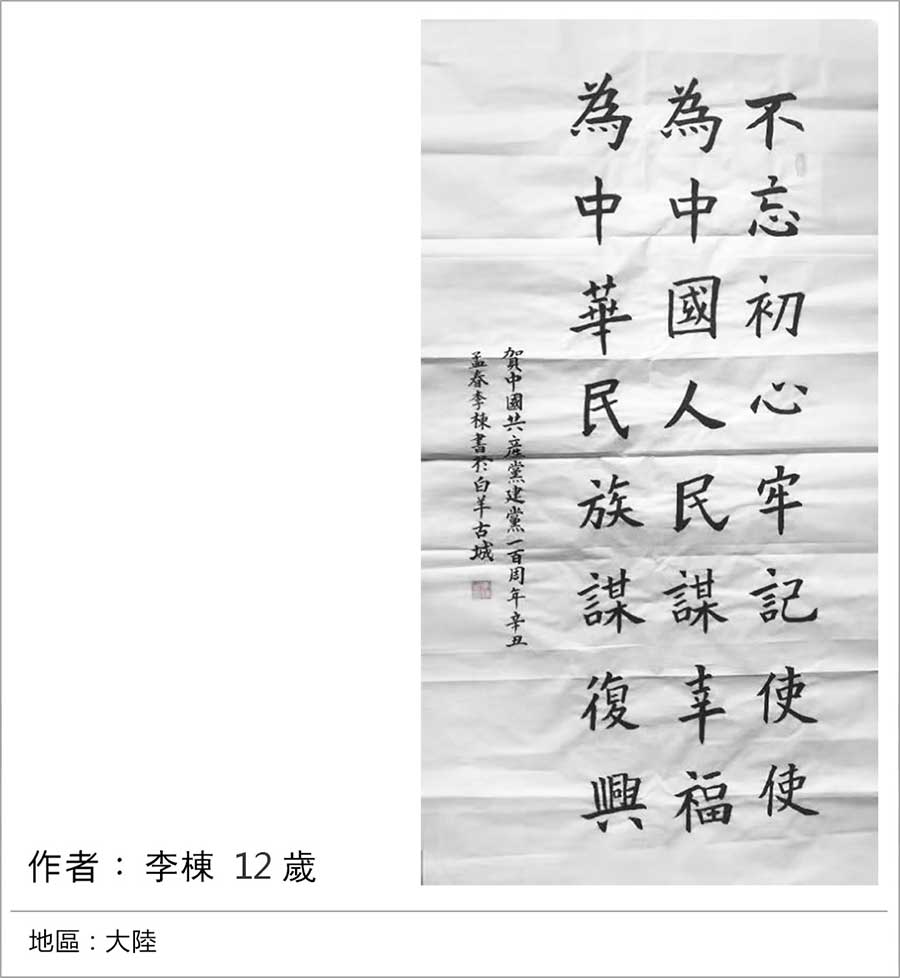 不忘初心牢記使使
為中國人民謀幸福
為中華民族謀復興
賀中國共産黨建黨一百周年辛丑
孟春李棟書於白羊古城
作者：李棟 12歲
地區：大陸